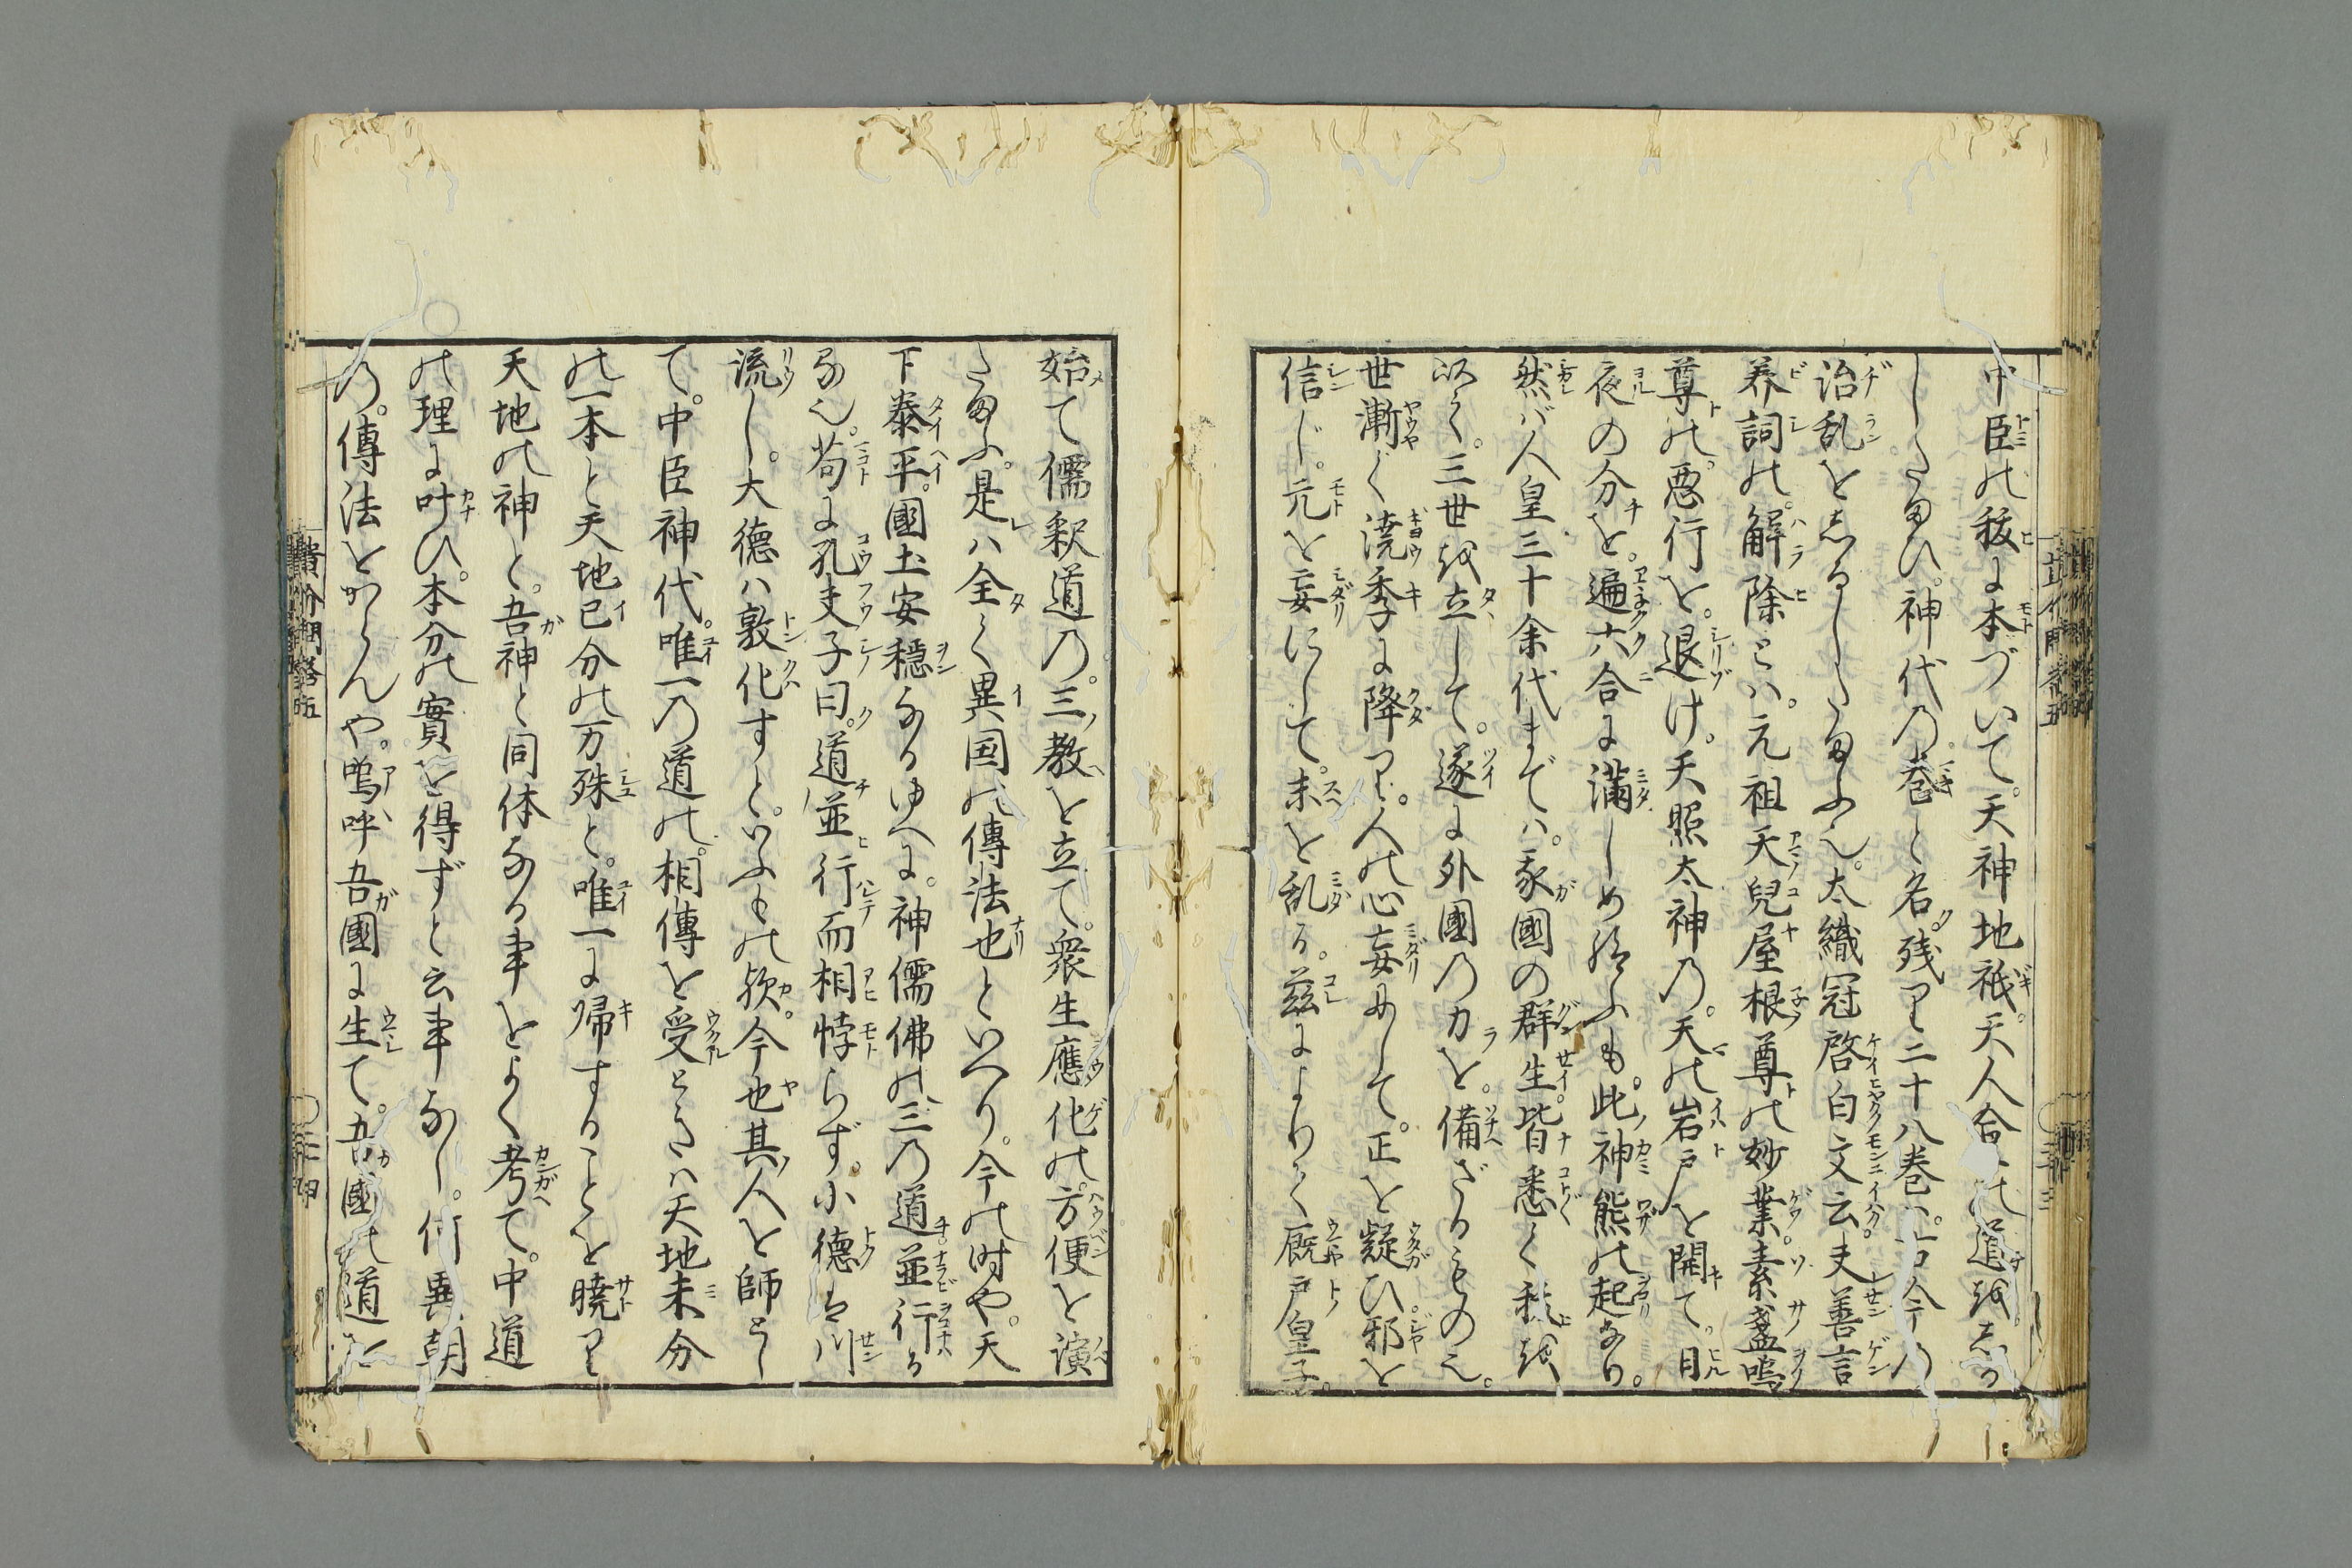 中臣の祓に本づいて。天神地祇。天人合一の道をしる
したまひ。神代の巻と名残り二十八巻は。古今の
治乱をしるしたまふ也。大織冠啓白文云。夫善言
養詞の。解除とは。元祖天兒屋根尊の妙業。素盞嗚
尊の。悪行を。退け。天照太神の。天の岩戸を開て。日
夜の分を。遍六合に満しめ給ふも。此神態の起なり。
然ば人皇三十余代までは。我國の群生。皆悉く祓を
以て。三世を立して。遂に外國の力を。備ざるもの也。
世漸く澆季に降り。人の心妄にして。正を疑ひ。邪を
信じ。元を妄にして。末を乱る。茲によりて厩戸皇子。
始て儒釈道の。三教を立て。衆生應化の。方便を演
たまふ。是は全く異国の傳法也といへり。今の時や。天
下泰平。國土安穏なるゆへに。神儒佛の三の道並行る
る也。苟に孔夫子曰。道並行而相悖らず。小德は川
流し。大德は敦化すと。いふもの歟。今也其人を師とし
て。中臣神代。唯一の道の。相傳を受ときは天地未分
の一本と天地已分の万殊と。唯一に帰することを曉り
天地の神と。吾神と同体なる事をよく考て。中道
の理に叶ひ。本分の實を得ずと云事なし。何異朝
の。傳法をからんや。嗚呼吾國に生て。吾國の道を